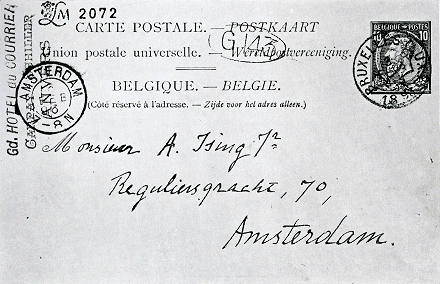 2072
CARTE POSTALE. — POSTKAART
Union postale universelle. — Wereldpostvereeniging.
BELGIQUE. — BELGIE.
(Côté réservé à l'adresse. — Zijde voor het adres alleen.)
Gd. HOTEL du COURRIER
AMSTERDAM
10 10
Monsieur A. Ising Jr
Reguliersgracht, 70,
Amsterdam.